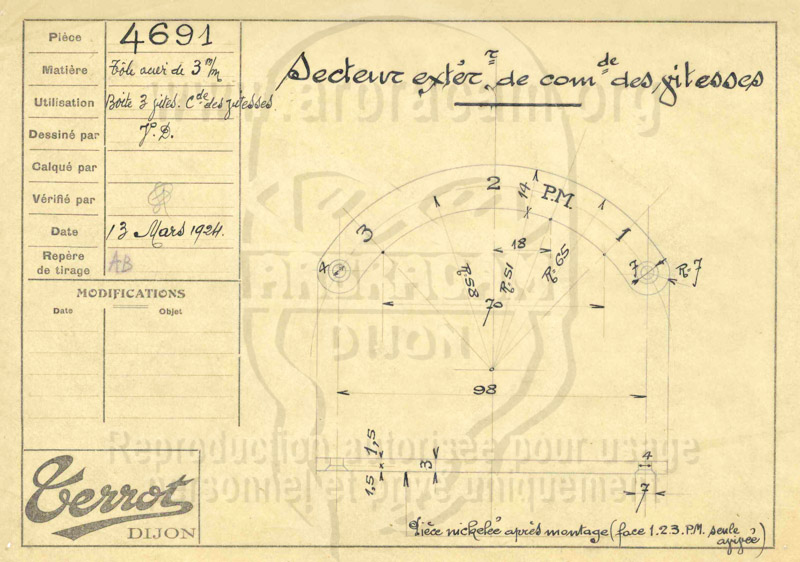 Pièce 4691
Matière Tôle acier de 3 m/m
Utilisation Boîte 3 vites. Cde des vitesses
Dessiné par J. D.
Calqué par
Vérifié par
Date 13 Mars 1924.
Repère de tirage AB
MODIFICATIONS
Date Objet
Terrot
DIJON
Secteurextér.r de comde des vitesses
www.amoracam.org
2
14
P.M.
3
1
18
4
7
R:7
R:58
R:51
R:65
70
DIJON
98
Reproduction autorisée pour usage
personnel et privé uniquement
1,5
1,5
3
4
7
Pièce nickelée après montage (face 1.2.3. P.M. seule
avivée)